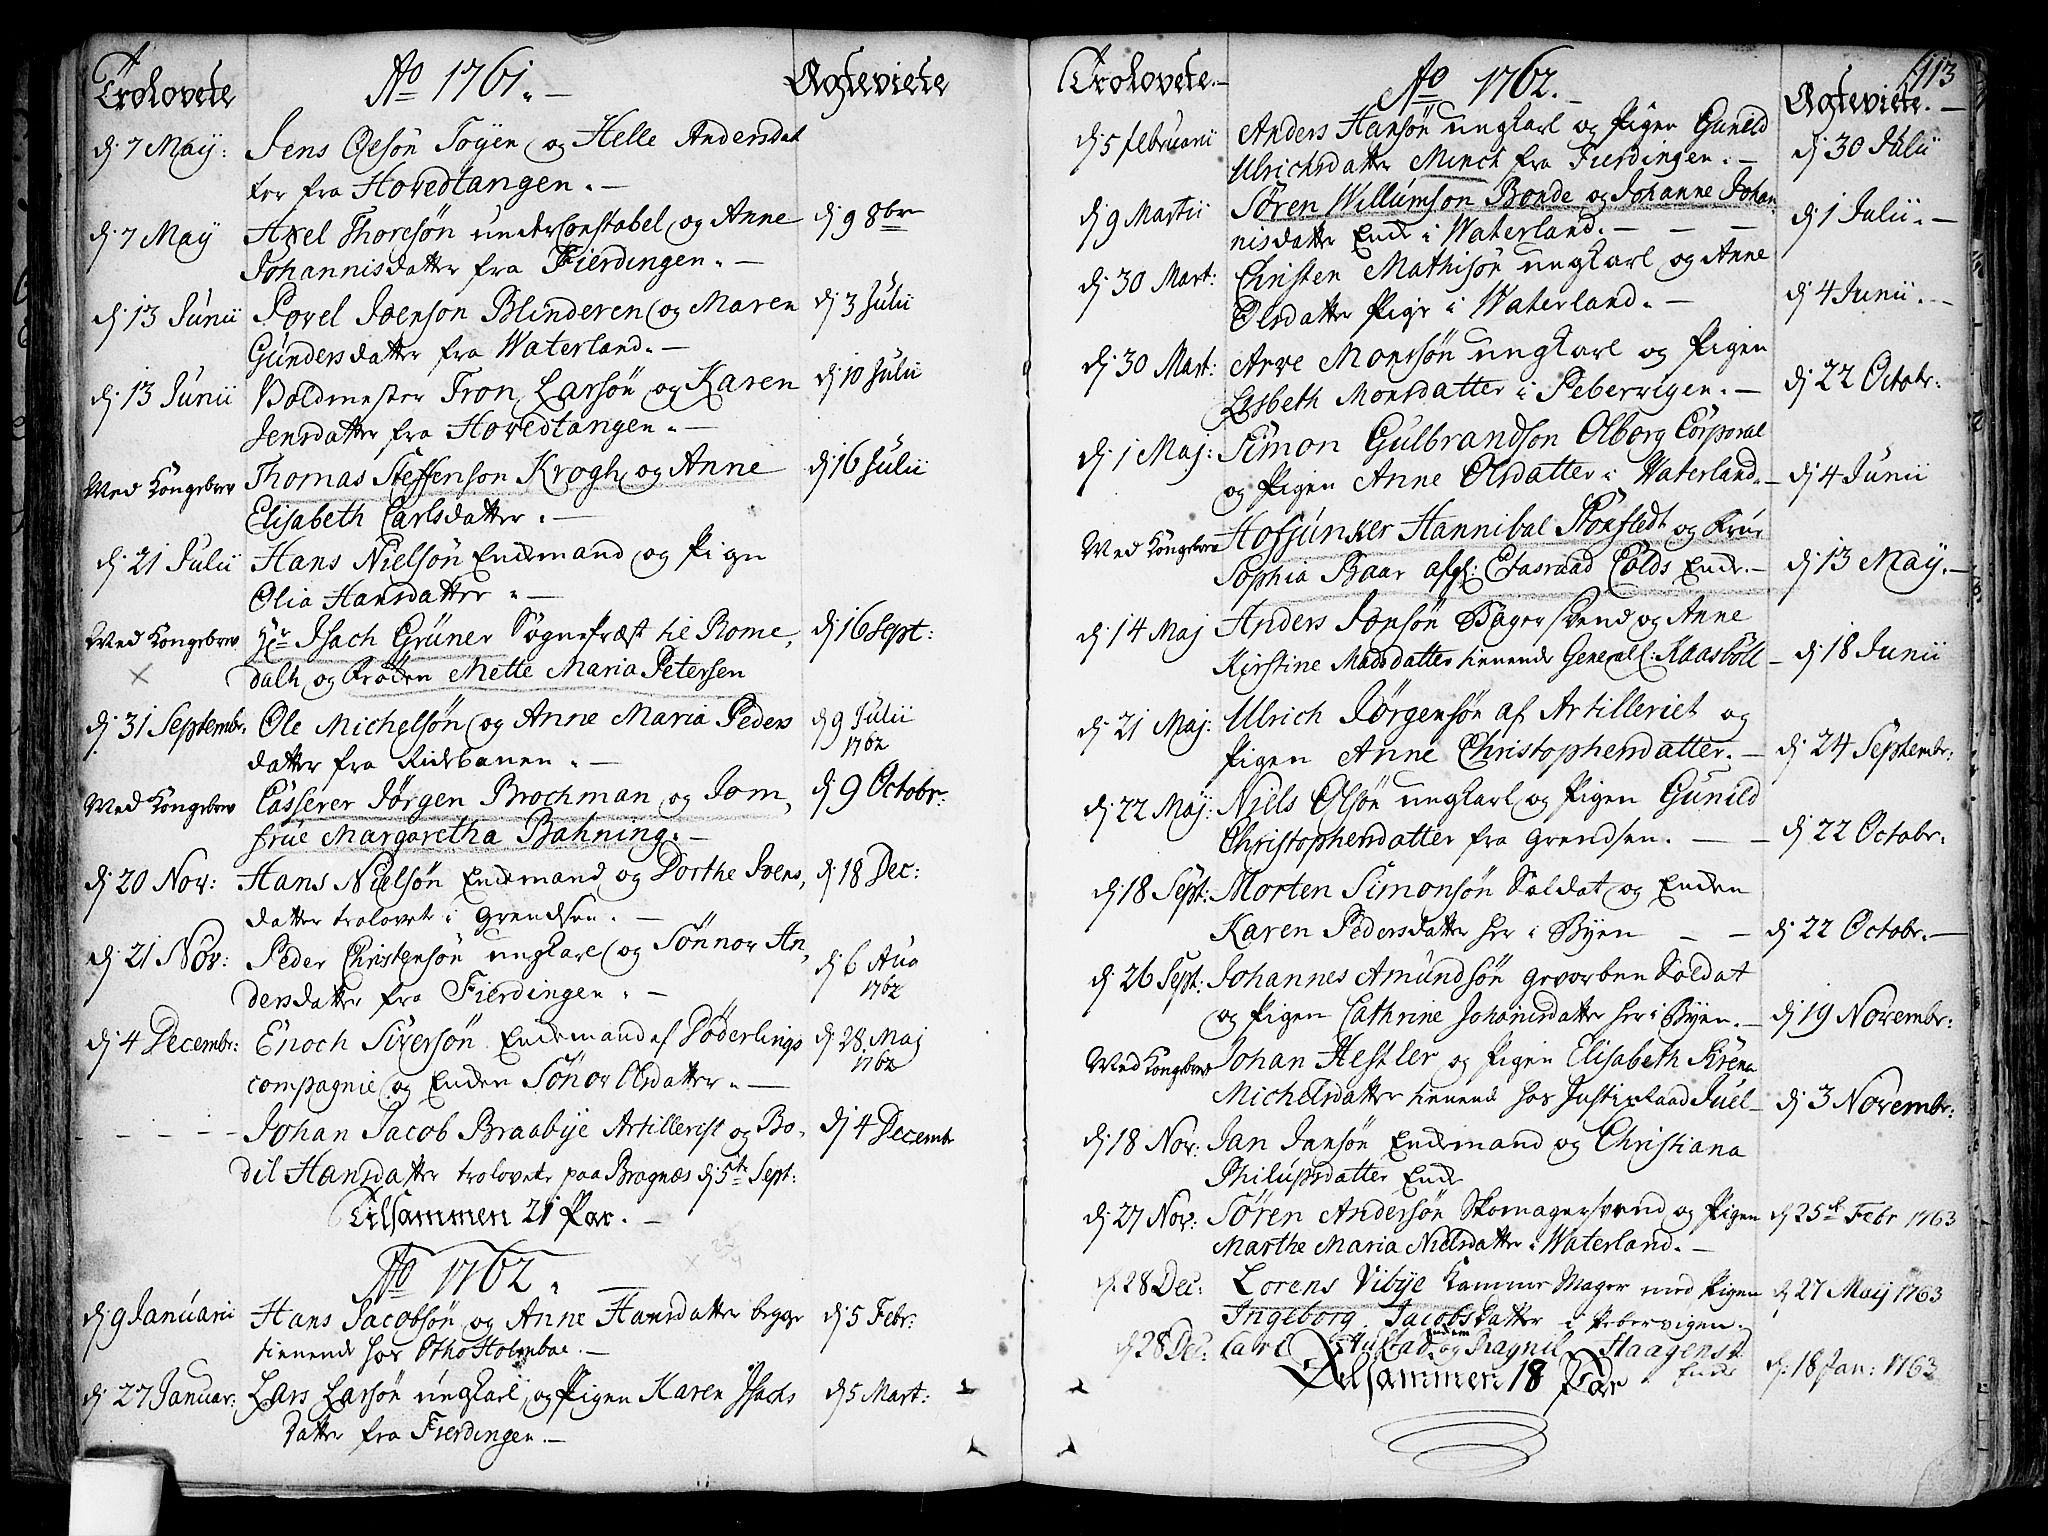 Trolovede
Ao 1761.
Ægteviede
d: 7 May: Jens Olesön Töyen og Helle Andersdat
ter fra Hovedtangen.
d: 7 May Axel Thoresön underConstabel og Anne d: 9 8br
Johannisdatter fra Fierdingen.
d: 13 Junii Povel Joenson Blinderen og Maren d: 3 Julii
Gundersdatter fra Waterland.
d: 13 Junii Voldmester Tron Larsön og Karen d: 10 Julii
Jensdatter fra Hovedtangen.
Med Kongebrev Thomas Steffenson Krogh og Anne d: 16 Julii
Elisabeth Carlsdatter.
d: 21 Julii Hans Nielsön Enckemand og Pign
Olia Hansdatter.
Med Kongebrev Hr Isach Grüner Sognepræst til Rome, d: 16 Sept:
dalh og Frøken Mette Maria Petersen
d: 31 Septembr. Ole Michelsön og Anne Maria Peders d 9 Julii
1762
datter fra Ridebanen.
Med Kongebrev Casserer Jørgen Brochman og Jom, d: 9 Octobr:
frue Margaretha Bahning.
d: 20 Nov: Hans Nielsön Enckemand og Dorthe Joens, d: 18 Dec:
datter trolovet i Grendsen.
d: 21 Nov: Peder Christensön ungkarl og Sönnov An, d: 6 Aug
1762
dersdatter fra Fierdingen.
d: 4 Decembr: Enoch Siversön Enckemand af Döderlings d: 28 Maj
1762
compagnie og Encken Sönov Olsdatter.
Johan Jacob Braabye Artillerist og Bo, d: 4 Decembr
dil Hansdatter trolovede paa Bragnæs d: 5te Sept:
Tilsammen 21 Par.
Ao 1762.
d: 9 Januarii Hans Jacobsön og Anne Hansdatter begge d: 5 Febr:
tienende hos Otho Holmboe.
d: 27 Januar: Lars Larsön ungkarl, og Pigen Karen Isachs d: 5 Mart:
datter fra Fierdingen.
113
Trolovede.
Ao 1762.
Ægteviede.
d: 5 Februarii Anders Hansön ungkarl og Pigen Gunild d: 30 Julii
Ulrichsdatter Minch fra Fierdingen.
d: 9 Martii Søren Willumson Bonde og Johanne Johan, d: 1 Julii.
nisdatter Encke i Waterland.
d: 30 Mart: Christen Mathisön ungkarl og Anne d: 4 Junii.
Olsdatter Pige i Waterland.
d: 30 Mart: Arve Monssön ungkarl og Pigen d: 22 Octobr:
Lisbeth Monsdatter i Pebervigen.
d: 1 Maj: Simon Gulbrandson Olborg Corporal
og Pigen Anne Olsdatter i Waterland. d: 4 Junii
Med Kongebrev Hofjunker Hannibal Stokfledt og Frue
Sophia Baar afgl: Etasraad Colds Encke. d: 13 May.
d: 14 Maj Anders Jonsön Bagersvend og Anne
Kirstine Madsdatter tienende General: Kaasböll d: 18 Junii
d: 21 Maj: Ulrich Jørgensön af Artilleriet og
Pigen Anne Christophersdatter. d: 24 Septembr:
d: 22 Maj: Niels Olsön ungkarl og Pigen Gunild
Christophersdatter fra Grendsen. d: 22 Octobr:
d: 18 Sept: Morten Simonsön Soldat og Encken
Karen Pedersdatter her i Byen d: 22 Octobr.
d: 26 Sept: Johannes Amundsön gevorben Soldat
og Pigen Cathrine Johanisdatter her i Byen. d: 19 Novembr:
Med Kongebrev Johan Hestler og Pigen Elisabeth Sirena
Michelsdatter tienende hos Justizraad Juel d: 3 Novembr:
d: 18 Nov: Jan Jansön Enckemand og Christiana
Philipsdatter Encke
d: 27 Nov: Søren Andersön Skomagersvend og Pigen d: 25de Febr 1763
Marthe Maria Nielsdatter i Waterland.
d. 28 Dec: Lorens Vibye Kammer Mager med Pigen d. 27 May 1763
Ingeborg Jacobsdatter i Pebervigen.
d 28 Dec: Carl Hustad og Ragnil Haagensd. d. 18 Jan: 1763
Encke
Tilsammen 18 Par